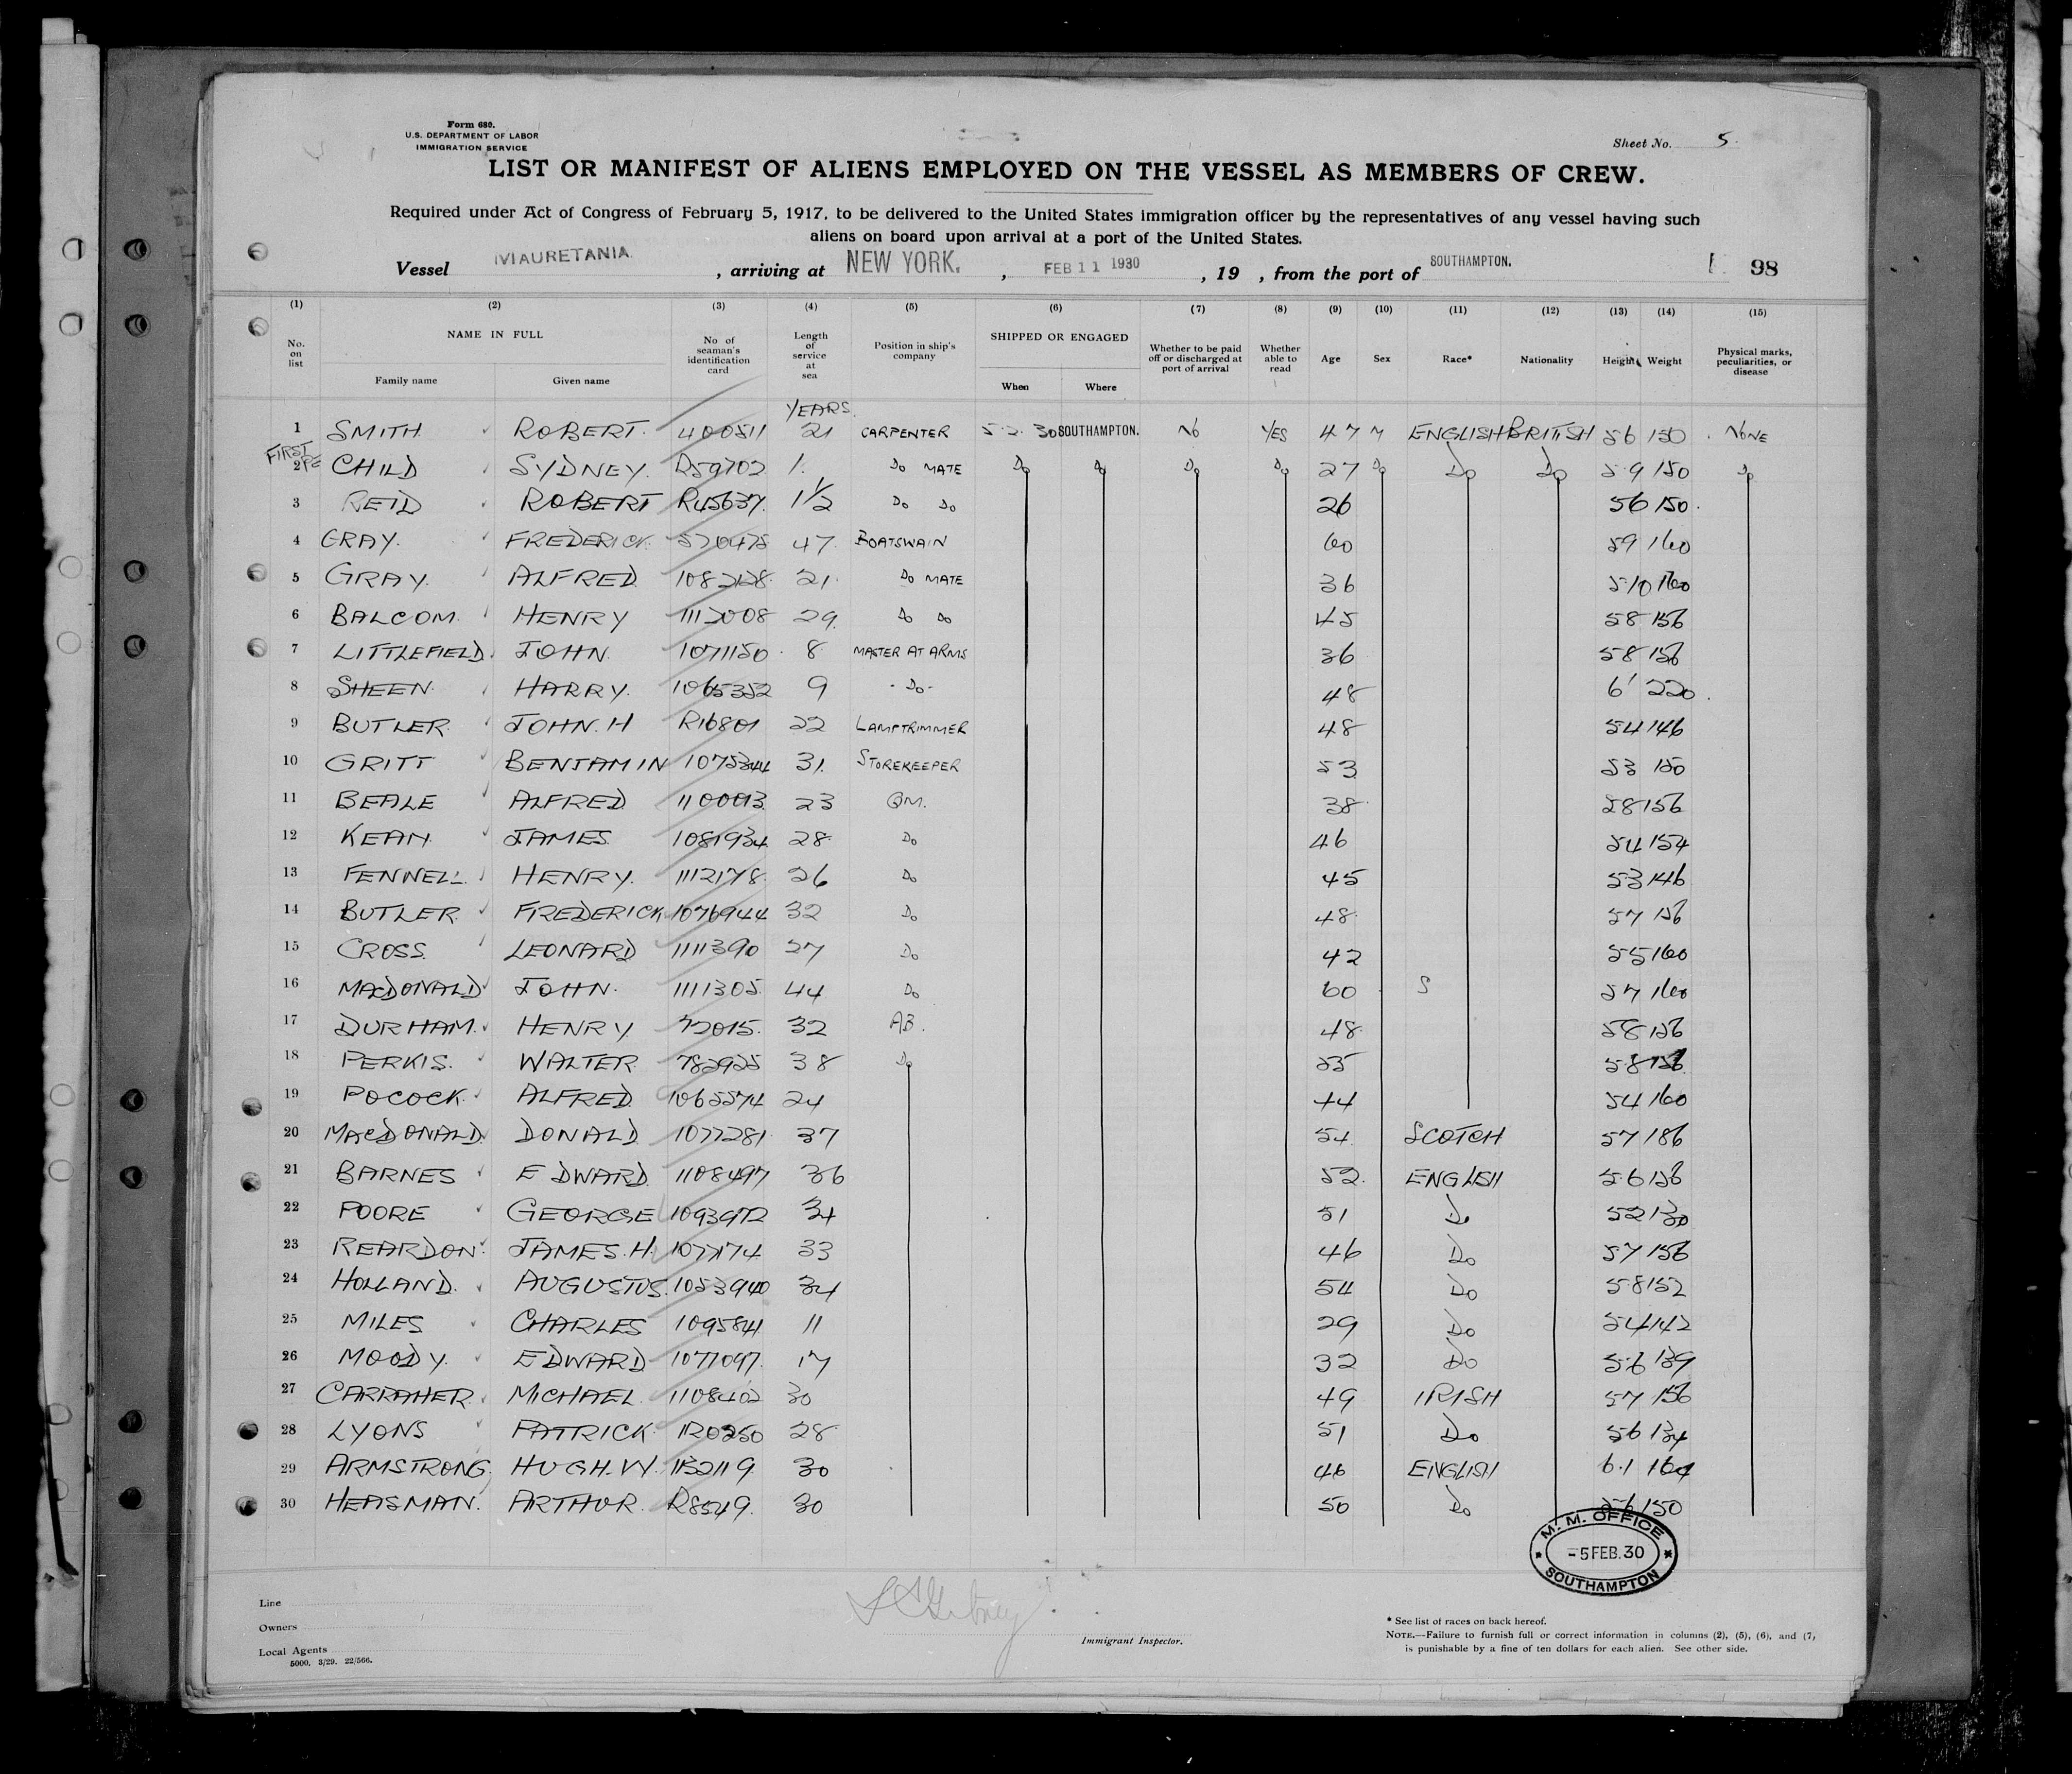 Form 680.
U.S. DEPARTMENT OF LABOR
IMMIGRATION SERVICE
Sheet No. 5.
LIST OR MANIFEST OF ALIENS EMPLOYED ON THE VESSEL AS MEMBERS OF CREW.
Required under Act of Congress of February 5, 1917, to be delivered to the United States immigration officer by the representatives of any vessel having such
aliens on board upon arrival at a port of the United States.
Vessel MAURETANIA. , arriving at NEW YORK. , FEB 11 1930 , 19 , from the port of SOUTHAMPTON. 98
(1) (2) (3) (4) (5) (6) (7) (8) (9) (10) (11) (12) (13) (14) (15)
No. on list NAME IN FULL Family name Given name No of seaman's identification card Length of service at sea Position in ship's company SHIPPED OR ENGAGED When Where Whether to be paid off or discharged at port of arrival Whether able to read Age Sex Race* Nationality Height Weight Physical marks, peculiarities, or disease
YEARS.
1 SMITH ROBERT. 400511 21 CARPENTER 5.2.30 SOUTHAMPTON. NO YES 47 M ENGLISH BRITISH 56 150 NONE
FIRST
2 CHILD SYDNEY. R59702 1. Do MATE Do Do Do Do 27 Do Do Do 5.9 150 Do
3 REID ROBERT R45637. 1 1/2 Do Do 26 56 150.
4 GRAY. FREDERICK 570475 47 BOATSWAIN 60 59 160
5 GRAY. ALFRED 1082128. 21. Do MATE 36 5.10 160
6 BALCOM. HENRY 1112008 29. Do Do 45 58 156
7 LITTLEFIELD. JOHN. 1071150 8 MASTER AT ARMS 36 58 156
8 SHEEN. HARRY. 1065352 9 -Do- 48 6' 220.
9 BUTLER. JOHN. H R16801 22 LAMPTRIMMER 48 54 146
10 GRITT BENJAMIN 1075344 31. STOREKEEPER 53 53 150
11 BEALE ALFRED 1100013. 23 QM. 38 58 156
12 KEAN. JAMES. 1081934 28. Do 46 54 154
13 FENNELL. HENRY. 1112178. 26 Do 45 53 146
14 BUTLER. FREDERICK. 1076944 32 Do 48. 57 156
15 CROSS. LEONARD 1111390 27 Do 42 55 160
16 MACDONALD JOHN. 1111305. 44 Do 60 S 57 160
17 DURHAM. HENRY 72015. 32 AB. 48. 58 156
18 PERKIS. WALTER. 782925 38 Do 55 58
19 POCOCK. ALFRED 1065574 24 44 54 160
20 MACDONALD. DONALD 1077281 37 54. SCOTCH 57 186
21 BARNES EDWARD 1108497 36 52. ENGLISH 5.6
22 POORE GEORGE 1093972 34 51 Do 52 130
23 REARDON. JAMES. H. 1077174 33 46 Do 57 156
24 HOLLAND. AUGUSTUS. 1053940 34 54 Do 58 152
25 MILES CHARLES 1095841 11 29 Do 54 142
26 MOODY. EDWARD 1077097. 17 32 Do 5.6 139
27 CARRAHER. MICHAEL 1108402 30 49 IRISH 57 156
28 LYONS PATRICK 28. 51 Do 56 134
29 ARMSTRONG. HUGH. W. 30 46 ENGLISH 6.1 164
30 HEASMAN. ARTHUR. R8549. 30 50 Do 56 150
M. M. OFFICE
-5 FEB. 30
SOUTHAMPTON
Line
Owners
Local Agents
5000. 3/29. 22/566.
Immigrant Inspector.
* See list of races on back hereof.
NOTE.—Failure to furnish full or correct information in columns (2), (5), (6), and (7,
is punishable by a fine of ten dollars for each alien. See other side.